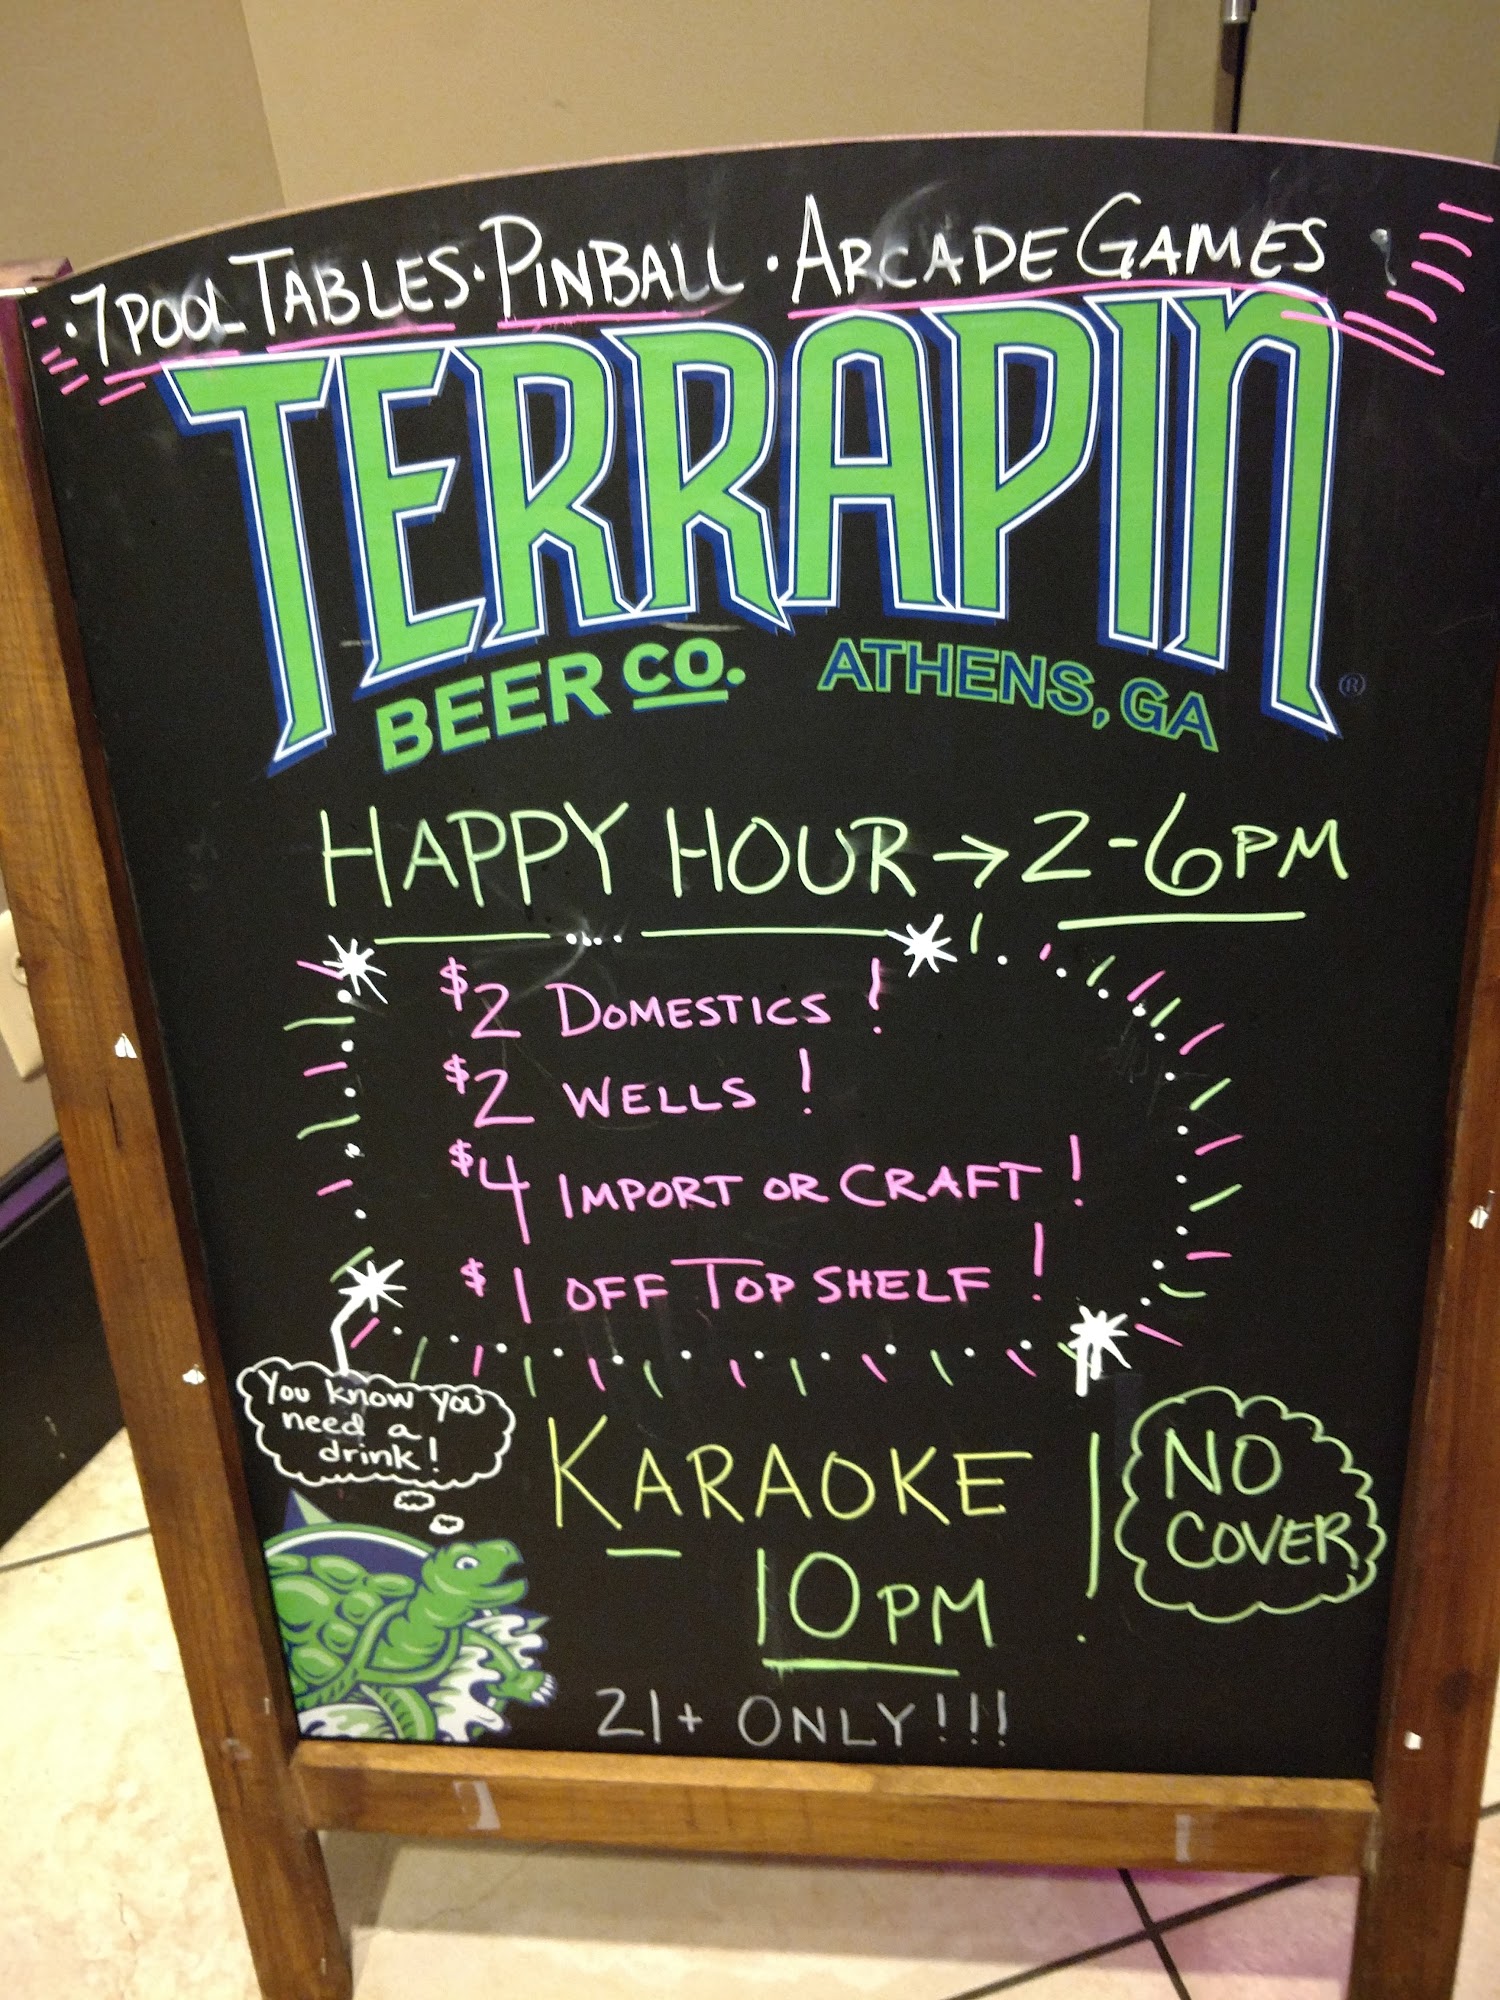 ·7 POOL TABLES · PINBALL · ARCADE GAMES
TERRAPIN ®
BEER CO. ATHENS, GA
HAPPY HOUR → 2-6PM
$2 DOMESTICS!
$2 WELLS!
$4 IMPORT OR CRAFT!
$1 OFF TOP SHELF!
You know you
need a
drink!
KARAOKE
10PM
NO
COVER
21+ ONLY!!!